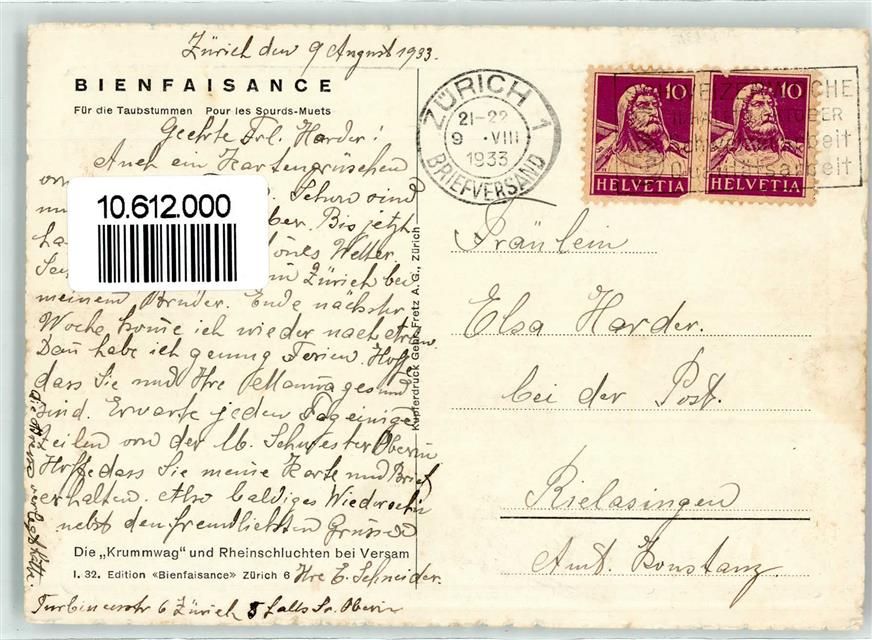 Zürich den 9 August 1933.
BIENFAISANCE
Für die Taubstummen Pour les Sourds-Muets
Geehrte Frl. Harder!
Auch ein Kartengrüschen
von
Schon sind
ber. Bis jetzt
ha önes Wetter.
in Zürich bei
meinem Bruder. Ende nächster
Woche kome ich wieder nach
Dan habe ich genung Ferien. Hoffe
dass Sie und Ihre Mama gesund
sind. Erwarte jeden Tag einige
Zeilen von der lb. Schwester Oberin
Hoffe dass Sie meine Karte und Brief
erhalten. Also baldiges Wiedersehn
nebst den freundlichsten Grüssen
Die „Krummwag" und Rheinschluchten bei Versam
I. 32. Edition «Bienfaisance» Zürich 6 Ihre E. Schneider.
Turbinenstr 6 Zürich 5 falls Sr. Oberin
die
Kupferdruck Gebr. Fretz A. G., Zürich
10.612.000
ZÜRICH 1
21-22
9 . VIII
1933
BRIEFVERSAND
10
HELVETIA
10
HELVETIA
Fräulein
Elsa Harder.
bei der Post.
Rielasingen
Amt. Konstanz.